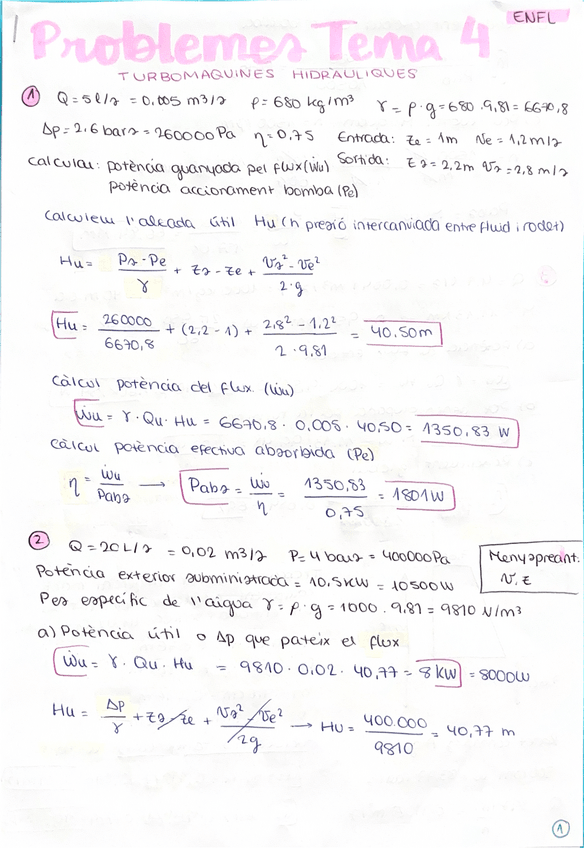 ENFL
Problemes Tema 4
TURBOMAQUINES HIDRÀULIQUES
1 Q = 5 l/s = 0,005 m3/s ρ = 680 kg/m³ γ = ρ·g = 680·9,81 = 6670,8
Δp = 2,6 bars = 260000 Pa η = 0,75 Entrada: ze = 1m ve = 1,2 m/s
Calcular: potència guanyada pel flux (Ẇu) Sortida: zs = 2,2m vs = 2,8 m/s
potència accionament bomba (Pe)
Calculem l'alçada útil Hu (h pressió intercanviada entre fluid i rodet)
Hu = (Ps - Pe)/γ + zs - ze + (vs² - ve²)/(2·g)
Hu = 260000/6670,8 + (2,2 - 1) + (2,8² - 1,2²)/(2·9,81) = 40,50m
Càlcul potència del flux. (Ẇu)
Ẇu = γ·Qu·Hu = 6670,8 · 0,005 · 40,50 = 1350,83 W
Càlcul potència efectiva absorbida (Pe)
η = Ẇu/Pabs → Pabs = Ẇu/η = 1350,83/0,75 = 1801 W
2 Q = 20 L/s = 0,02 m3/s P = 4 bars = 400000 Pa Menyspreant:
Potència exterior subministrada = 10,5 KW = 10500 W v, z
Pes específic de l'aigua γ = ρ·g = 1000 · 9,81 = 9810 N/m³
a) Potència útil o Δp que pateix el flux
Ẇu = γ·Qu·Hu = 9810 · 0,02 · 40,77 = 8 KW = 8000W
Hu = Δp/γ + zs - ze + (vs² - ve²)/2g → Hu = 400.000/9810 = 40,77 m
1